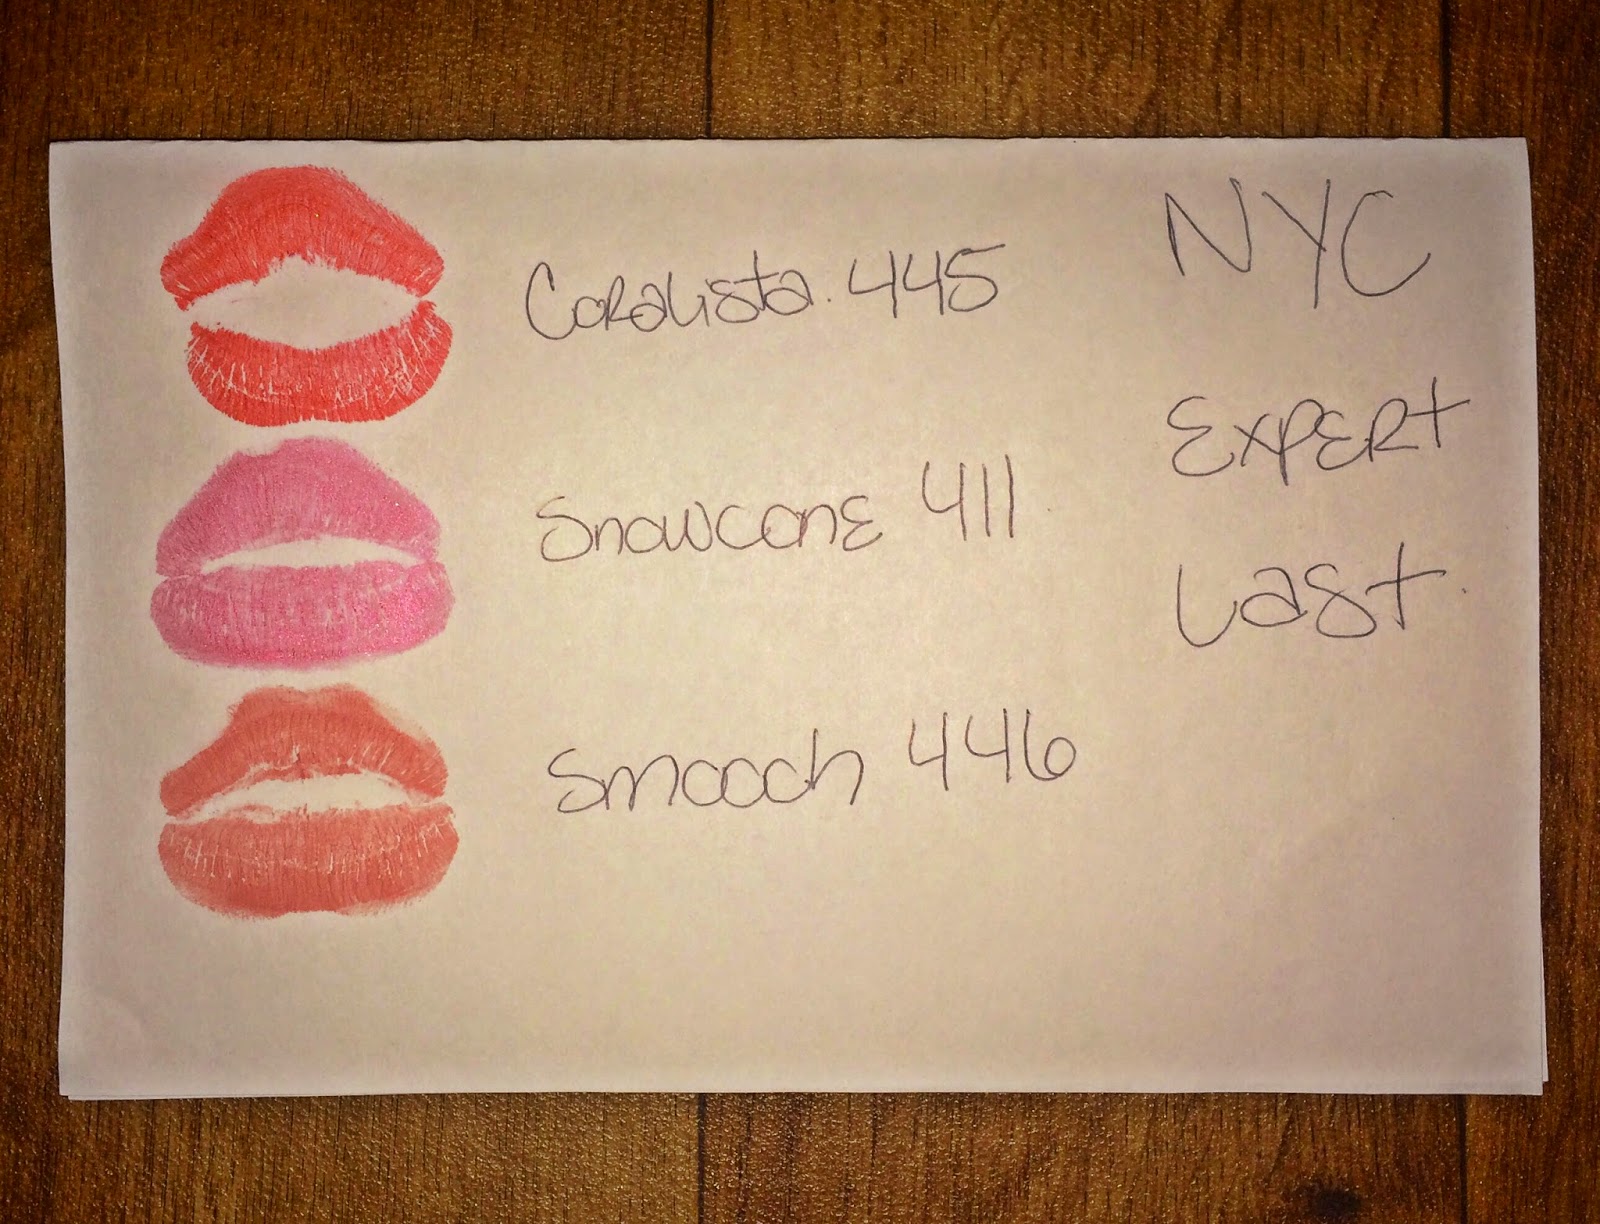 Coralista. 445
Snowcone 411
Smoooch 446
NYC
Expert
Last.